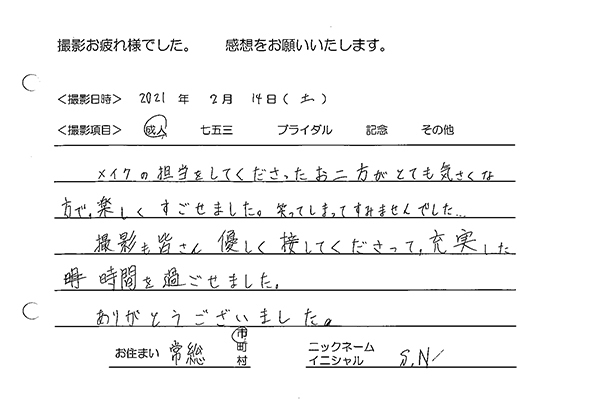 撮影お疲れ様でした。 感想をお願いいたします。
<撮影日時> 2021 年 2月 14日(土)
<撮影項目> 成人 七五三 ブライダル 記念 その他
メイクの担当をしてくださったお二方がとても気さくな
方で、楽しくすごせました。笑ってしまってすみませんでした…
撮影も皆さん優しく接してくださって、充実した
時間を過ごせました。
ありがとうございました。
お住まい 常総 市町村 ニックネーム イニシャル S.N